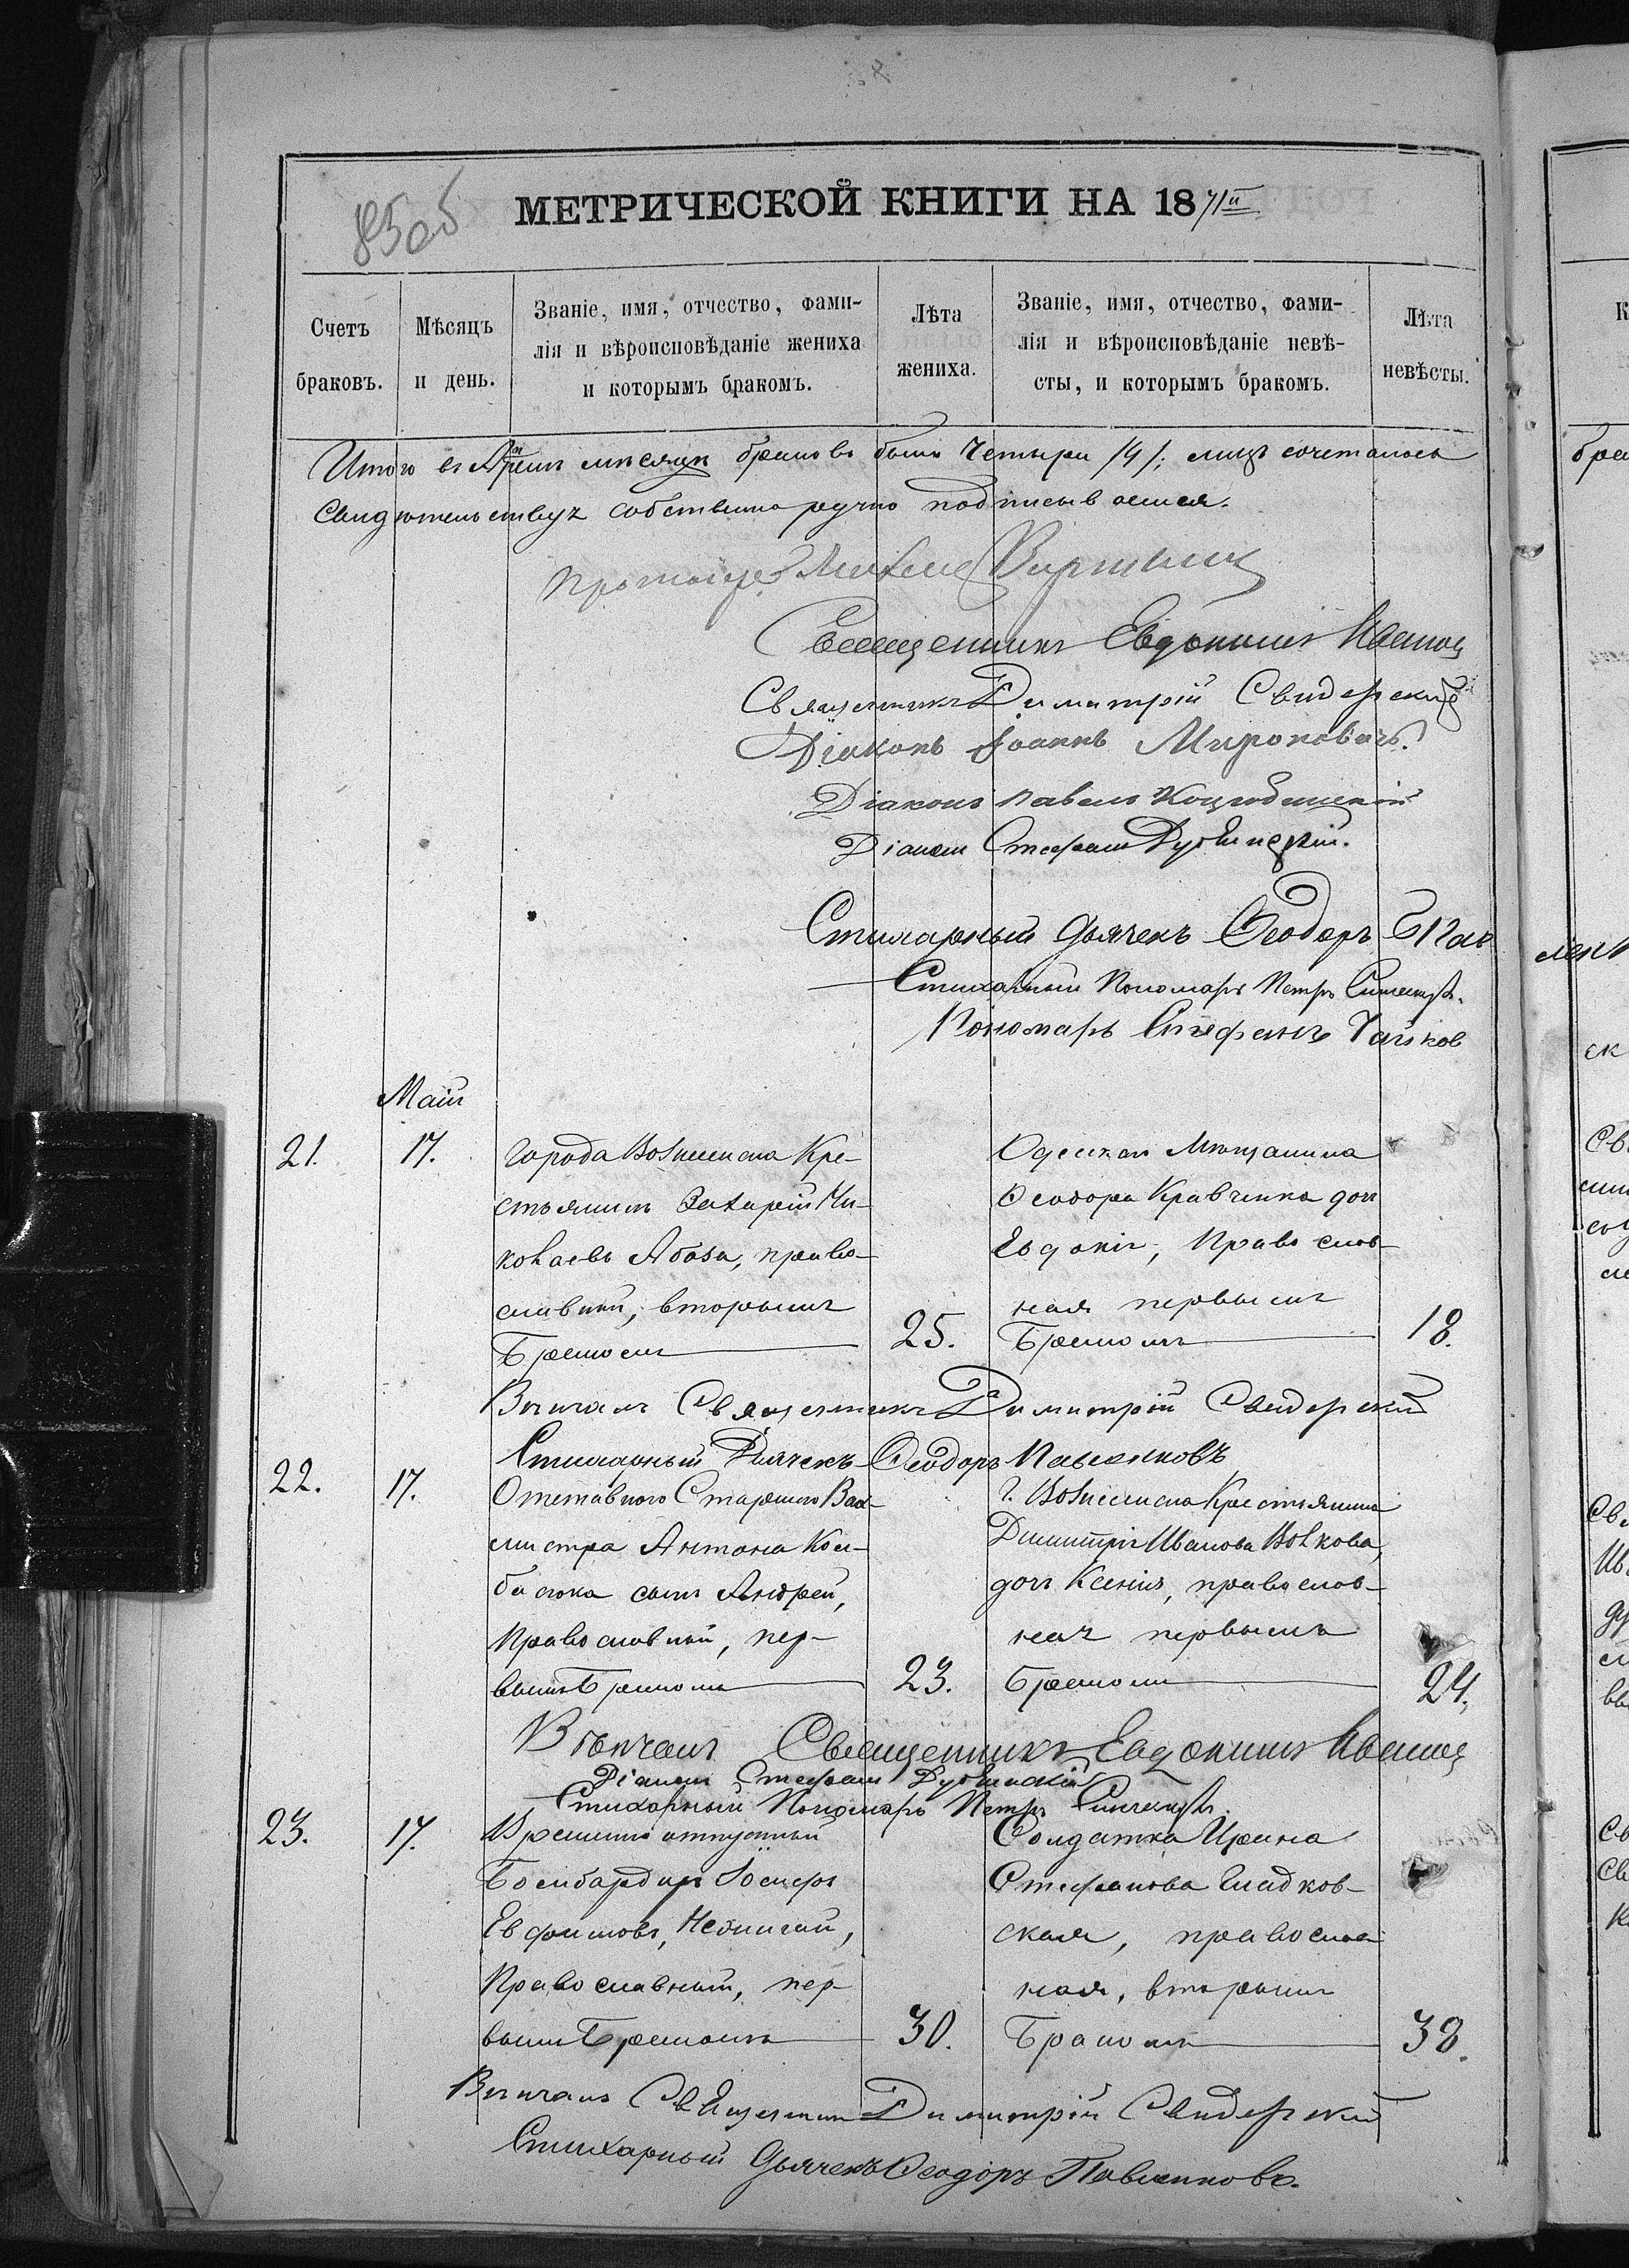 85об
МЕТРИЧЕСКОЙ КНИГИ НА 1871й
Счетъ браковъ.
Мѣсяцъ и день.
Званіе, имя, отчество, фами-
лія и вѣроисповѣданіе жениха
и которымъ бракомъ.
Лѣта жениха.
Званіе, имя, отчество, фами-
лія и вѣроисповѣданіе невѣ-
сты, и которымъ бракомъ.
Лѣта невѣсты.
Итого въ мѣсяцѣ браковъ было Четыри /4/; лицъ сочеталось
собственно ручно подписываемся.
Священникъ Евдокимъ
Священникъ Димитрій Свидерскій
Діаконъ Іоаннъ Мироновичъ.
Діаконъ Павелъ
Діаконъ Стефанъ
Стихарный Дьячекъ Ѳеодоръ
Стихарный Пономарь Петръ
Пономарь Стефанъ
Май
21.
17.
Города Вознесенска Кре-
стьянинъ Захарій Ни-
колаевъ Абаза, право-
славный, вторымъ
Бракомъ
25.
Одескаго Мѣщанина
Ѳеодора Кравченка дочь
Евдокія, Православ-
ная первымъ
Бракомъ
18.
Вѣнчалъ Священникъ Димитрій Свидерскій
Стихарный Дьячекъ Ѳеодоръ Павленковъ
22.
17.
Отставного Старшаго Вах-
мистра Антона Кол-
басюка сынъ Андрей,
Православный, пер-
вымъ Бракомъ
23.
Г. Вознесенска Крестьянина
Димитрія Иванова Волкова,
дочь Ксенія, православ-
ная первымъ
Бракомъ
24.
Вѣнчалъ Священникъ Евдокимъ
Діаконъ Стефанъ
Стихарный Пономарь Петръ
23.
17.
Временно отпускный
Бомбардиръ Іосифъ
Евфимовъ,
Православный, пер-
вымъ Бракомъ
30.
Солдатка Ирина
Стефанова Гладков-
ская, православ-
ная, вторымъ
Бракомъ
38.
Вѣнчалъ Священникъ Димитрій Свидерскій
Стихарный Дьячекъ Ѳеодоръ Павленковъ.